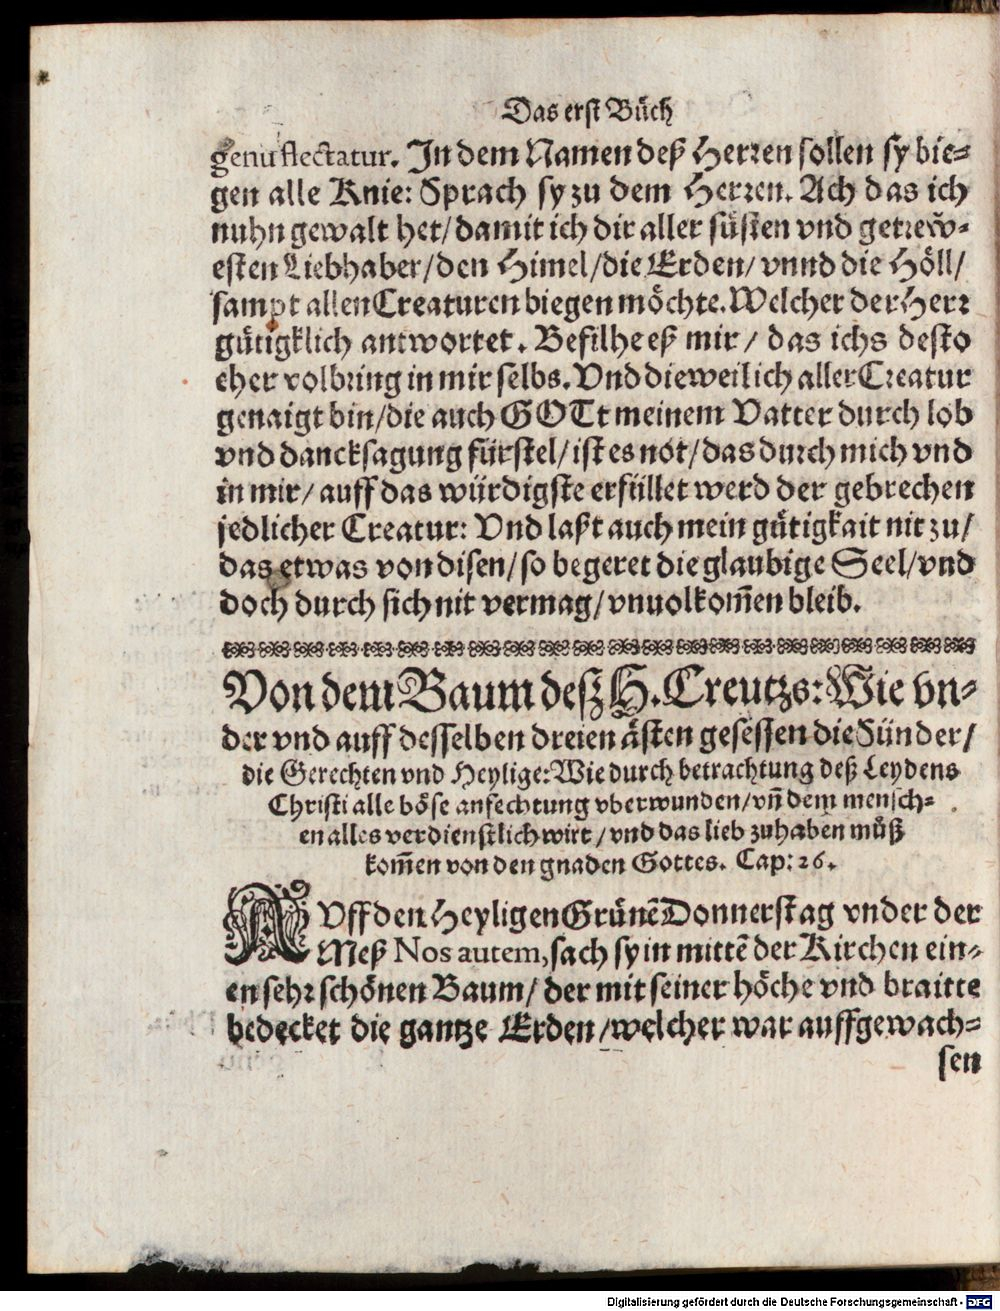 Das erst Bůch
genu flectatur. In dem Namen deß Herren sollen sy bie-
gen alle Knie: Sprach sy zu dem Herren. Ach das ich
nuhn gewalt het/ damit ich dir aller süsten vnd getrew-
esten Liebhaber/ den Himel/ die Erden/ vnnd die Höll/
sampt allen Creaturen biegen möchte. Welcher der Herr
gütigklich antwortet. Befilhe eß mir/ das ichs desto
eher volbring in mir selbs. Vnd dieweil ich aller Creatur
genaigt bin/ die auch GOTt meinem Vatter durch lob
vnd dancksagung fürstel/ ist es not/ das durch mich vnd
in mir/ auff das würdigste erfüllet werd der gebrechen
jedlicher Creatur: Vnd laßt auch mein gütigkait nit zu/
das etwas von disen/ so begeret die glaubige Seel/ vnd
doch durch sich nit vermag/ vnuolkom̃en bleib.
Von dem Baum deß H. Creutzs: Wie vn-
der vnd auff desselben dreien ästen gesessen die Sünder/
die Gerechten vnd Heylige: Wie durch betrachtung deß Leydens
Christi alle böse anfechtung vberwunden/ vñ dem mensch-
en alles verdienstlich wirt/ vnd das lieb zuhaben můß
kom̃en von den gnaden Gottes. Cap: 26.
AVff den Heyligen Grünẽ Donnerstag vnder der
Meß Nos autem, sach sy in mittẽ der Kirchen ein-
en sehr schönen Baum/ der mit seiner höche vnd braitte
bedecket die gantze Erden/ welcher war auffgewach-
sen
Digitalisierung gefördert durch die Deutsche Forschungsgemeinschaft - DFG